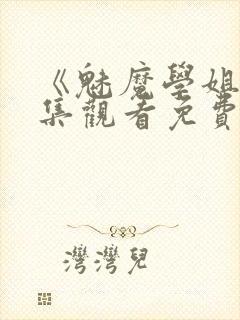 《魅魔學姐
集觀看免費
灣灣兒